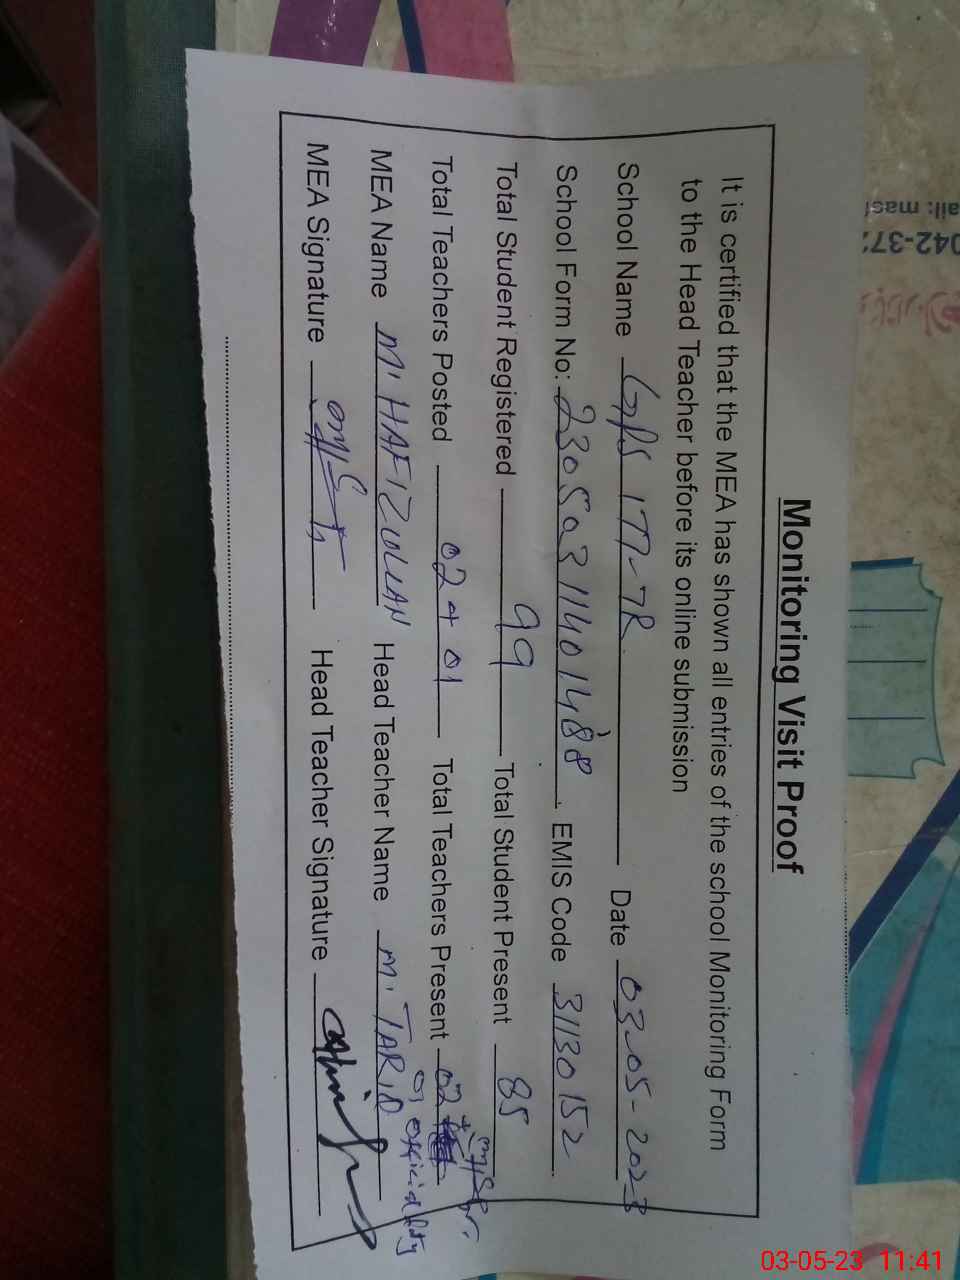 Monitoring Visit Proof
It is certified that the MEA has shown all entries of the school Monitoring Form
to the Head Teacher before its online submission
School Name GPS 177-7R Date 03-05-2023
School Form No: 23050311401488 EMIS Code 31130152
Total Student Registered 99 Total Student Present 85
Total Teachers Posted 02+01 Total Teachers Present 02 +
01 Official duty
MEA Name M. HAFIZULLAH Head Teacher Name M. TARIQ
MEA Signature Head Teacher Signature
ail: mas
042-37
03-05-23 11:41